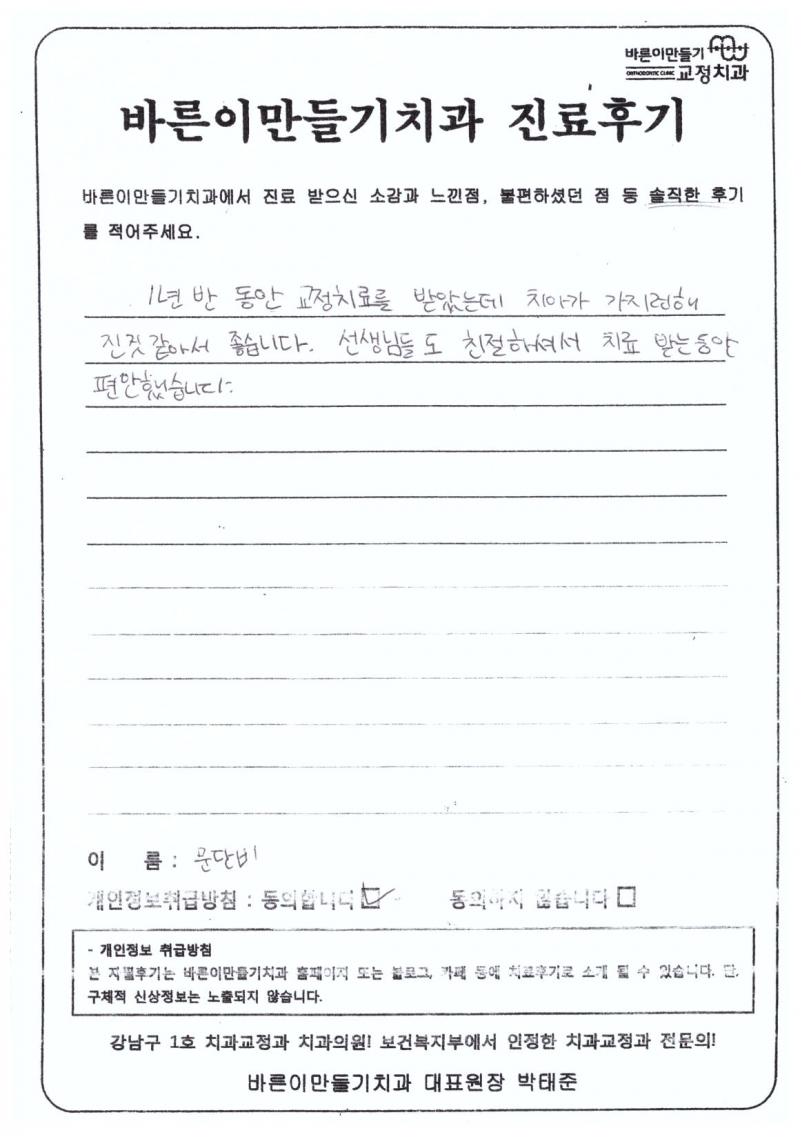 바른이만들기
ORTHODONTIC CLINIC 교정치과
바른이만들기치과 진료후기
바른이만들기치과에서 진료 받으신 소감과 느낀점, 불편하셨던 점 등 솔직한 후기
를 적어주세요.
1년 반 동안 교정치료를 받았는데 치아가 가지런해
진것 같아서 좋습니다. 선생님들도 친절하셔서 치료 받는동안
편안했습니다.
이 름 : 문단비
개인정보취급방침 : 동의합니다 ☑ 동의하지 않습니다 ☐
- 개인정보 취급방침
본 자필후기는 바른이만들기치과 홈페이지 또는 블로그, 카페 등에 치료후기로 소개 될 수 있습니다. 단,
구체적 신상정보는 노출되지 않습니다.
강남구 1호 치과교정과 치과의원! 보건복지부에서 인정한 치과교정과 전문의!
바른이만들기치과 대표원장 박태준